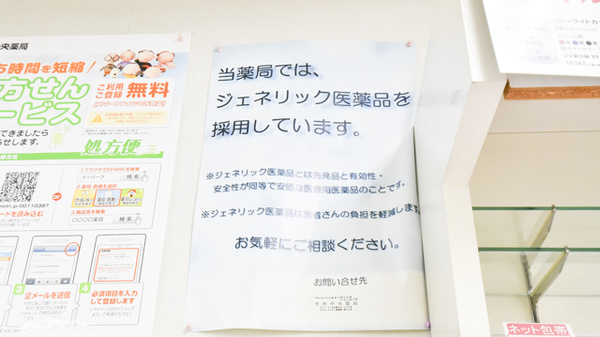 央薬局
5時間を短縮
方せん
ービス
ご利用
ご登録
無料
できましたら
らせします。
処方便
検索
検索
〇〇〇〇薬局
ートを読み込む
空メールを送信
4
必須項目を入力
して登録します
当薬局では、
ジェネリック医薬品を
採用しています。
※ジェネリック医薬品とは先発品と有効性・
安全性が同等で安価な医療用医薬品のことです。
※ジェネリック医薬品は患者さんの負担を軽減します
お気軽にご相談ください。
お問い合せ先
ブルーライトカ
ネット包帯